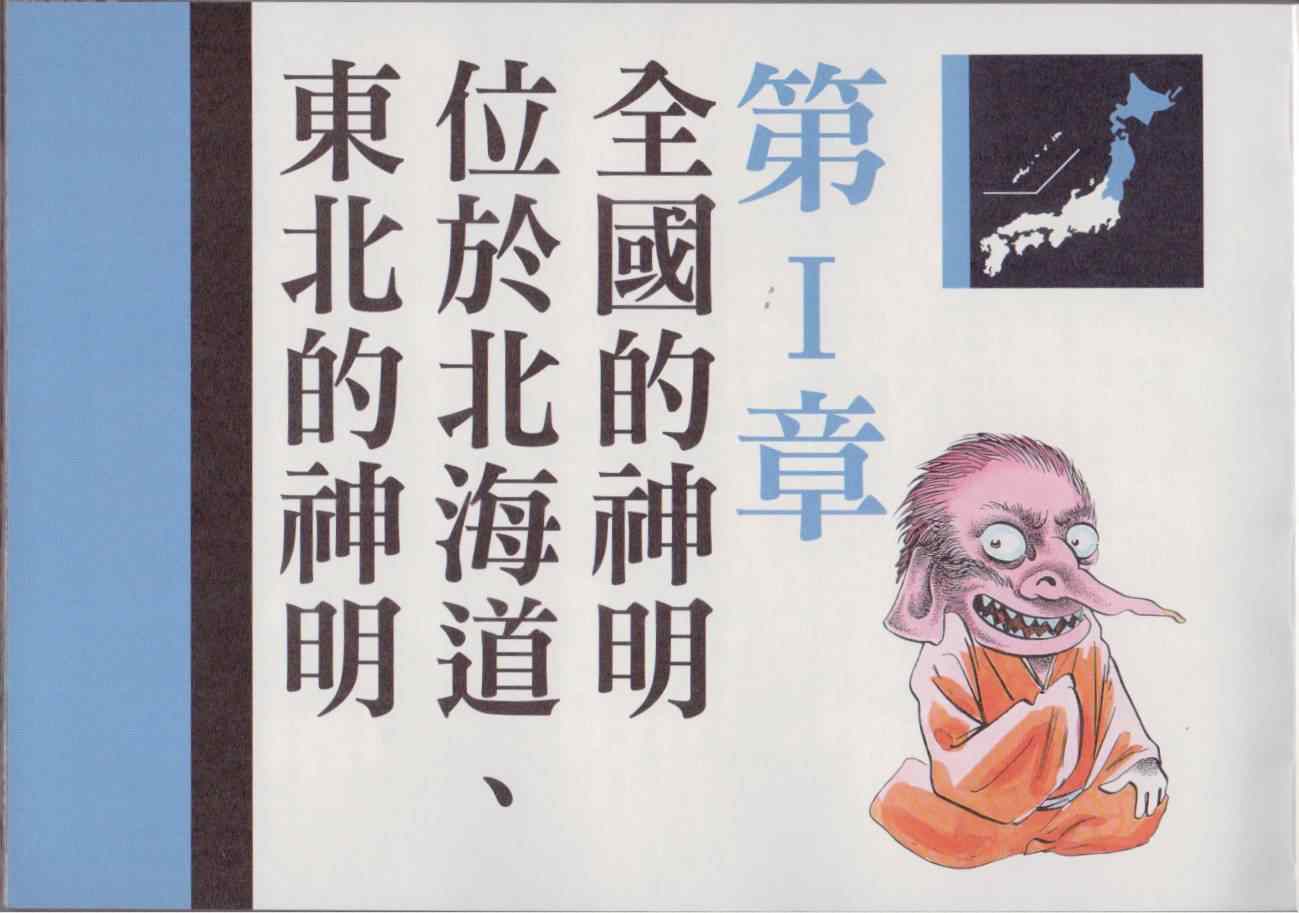 第I章
全國的神明
位於北海道、
東北的神明